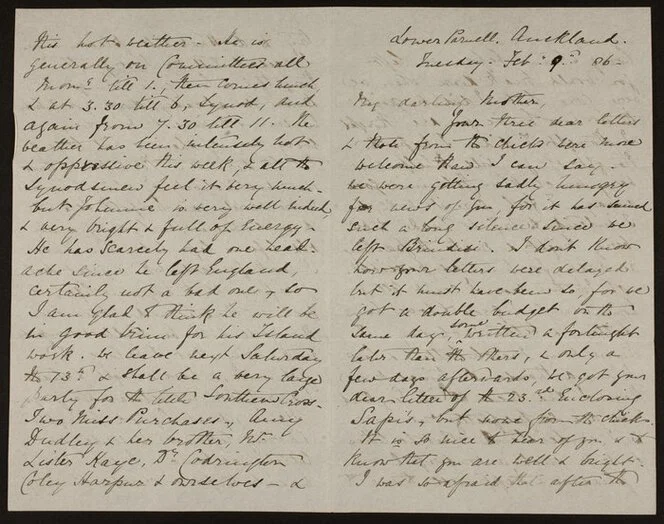 Lower Parnell. Auckland.
Tuesday. Feb: 9th 86-
My darling Mother,
Your three dear letters
& those from the chicks were more
welcome than I can say.
We were getting sadly hungry
for news of you for it has seemed
such a long silence since we
left Brindisi. I don't know
how your letters were delayed
but it must have been so for we
got a double budget on the
same day, some written a fortnight
later than the others, & only a
few days afterwards we got your
dear letter of the 23rd enclosing
but none from the chicks.
It is so nice to hear of you & to
know that you are well & bright.
I was so afraid that after the
this hot weather - He is
generally on Committees all
Morng till 1., then comes lunch
& at 3.30 till 6, Synod, and
again from 7.30 till 11. The
weather has been intensely hot
& oppressive this week, & all the
Synodsmen feel it very much -
but Johnnie is very well indeed
& very bright & full of energy -
He has scarcely had one head-
ache since he left England,
certainly not a bad one, so
I am glad to think he will be
in good trim for his Island
work. We leave next Saturday
the 13th & shall be a very large
party for the little Southern Cross -
Two Miss Purchases, Amy
Dudley & her brother, Mr
Lister Kaye, Dr Codrington
Coley Harpur & ourselves - &